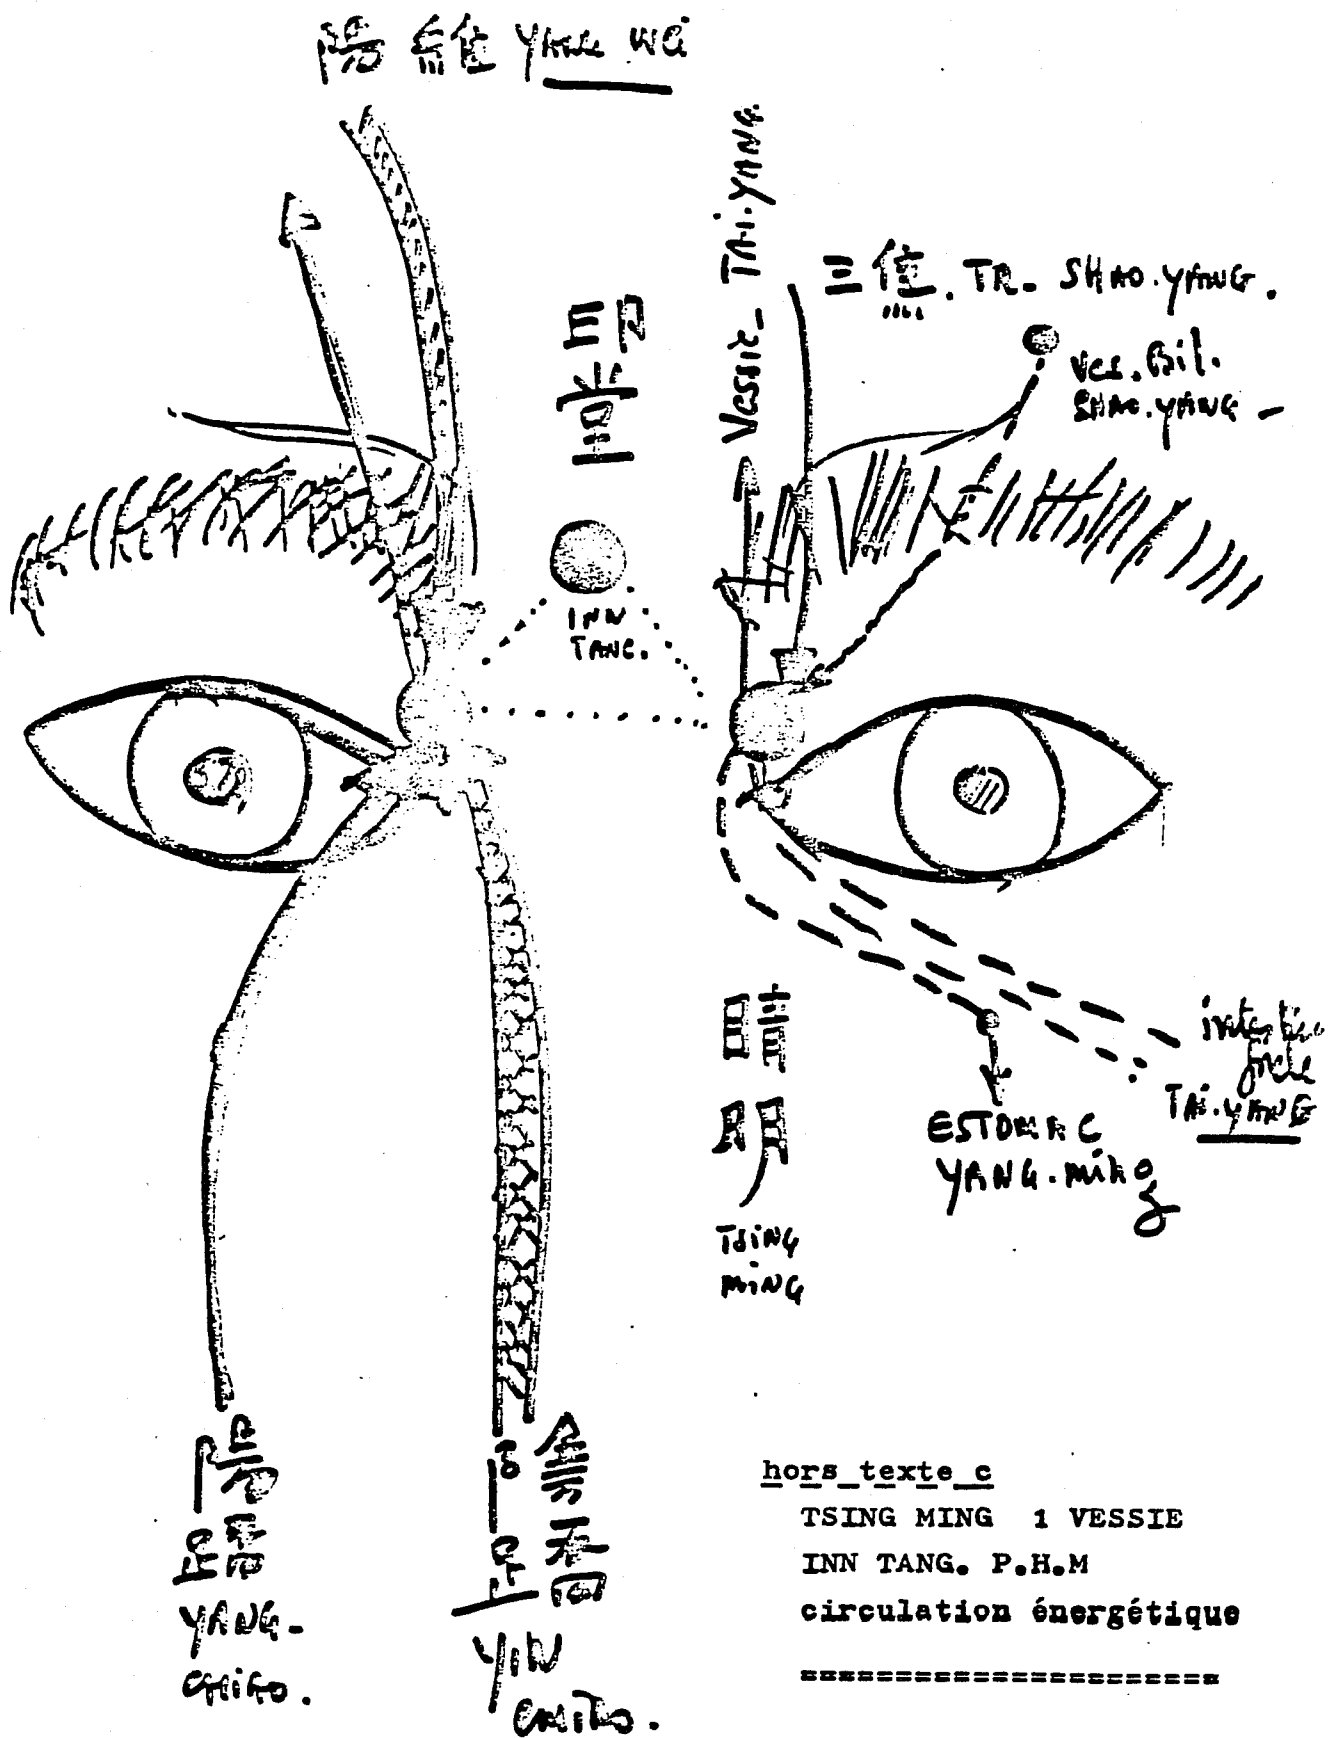 陽維 YANG WEI
Vessie_ TAI.YANG
三焦. TR_ SHAO.YANG.
Ves. Bil.
SHAO.YANG _
印堂
INN
TANG.
睛明
TSING
MING
ESTOMAC
YANG.MING
intestin
grele
TAI.YANG
陽蹻
YANG_
CHIAO.
陰蹻
YIN
CHIAO.
hors_texte_c
TSING MING 1 VESSIE
INN TANG. P.H.M
circulation énergétique
======================